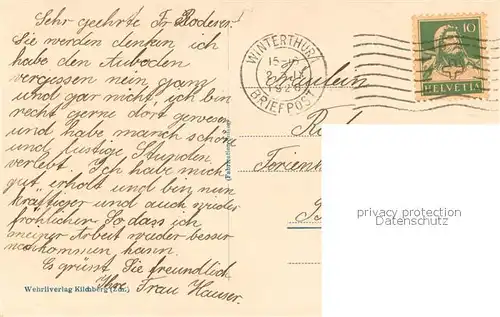 Sehr geehrte Fr. Roderer.
Sie werden denken, ich
habe den Auboden
vergessen nein ganz
und gar nicht, ich bin
recht gerne dort gewesen
und habe manch schöne
und lustige Stunden
verlebt. Ich habe mich
gut erholt und bin nun
kräftiger und auch wieder
fröhlicher. So dass ich
meiner Arbeit wieder besser
nachkommen kann.
Es grüsst Sie freundlich
Ihre Frau Hauser.
Wehrliverlag Kilchberg (Zch.)
WINTERTHUR 1
BRIEFPOST
10
HELVETIA
Fräulein
Ferienh
privacy protection
Datenschutz